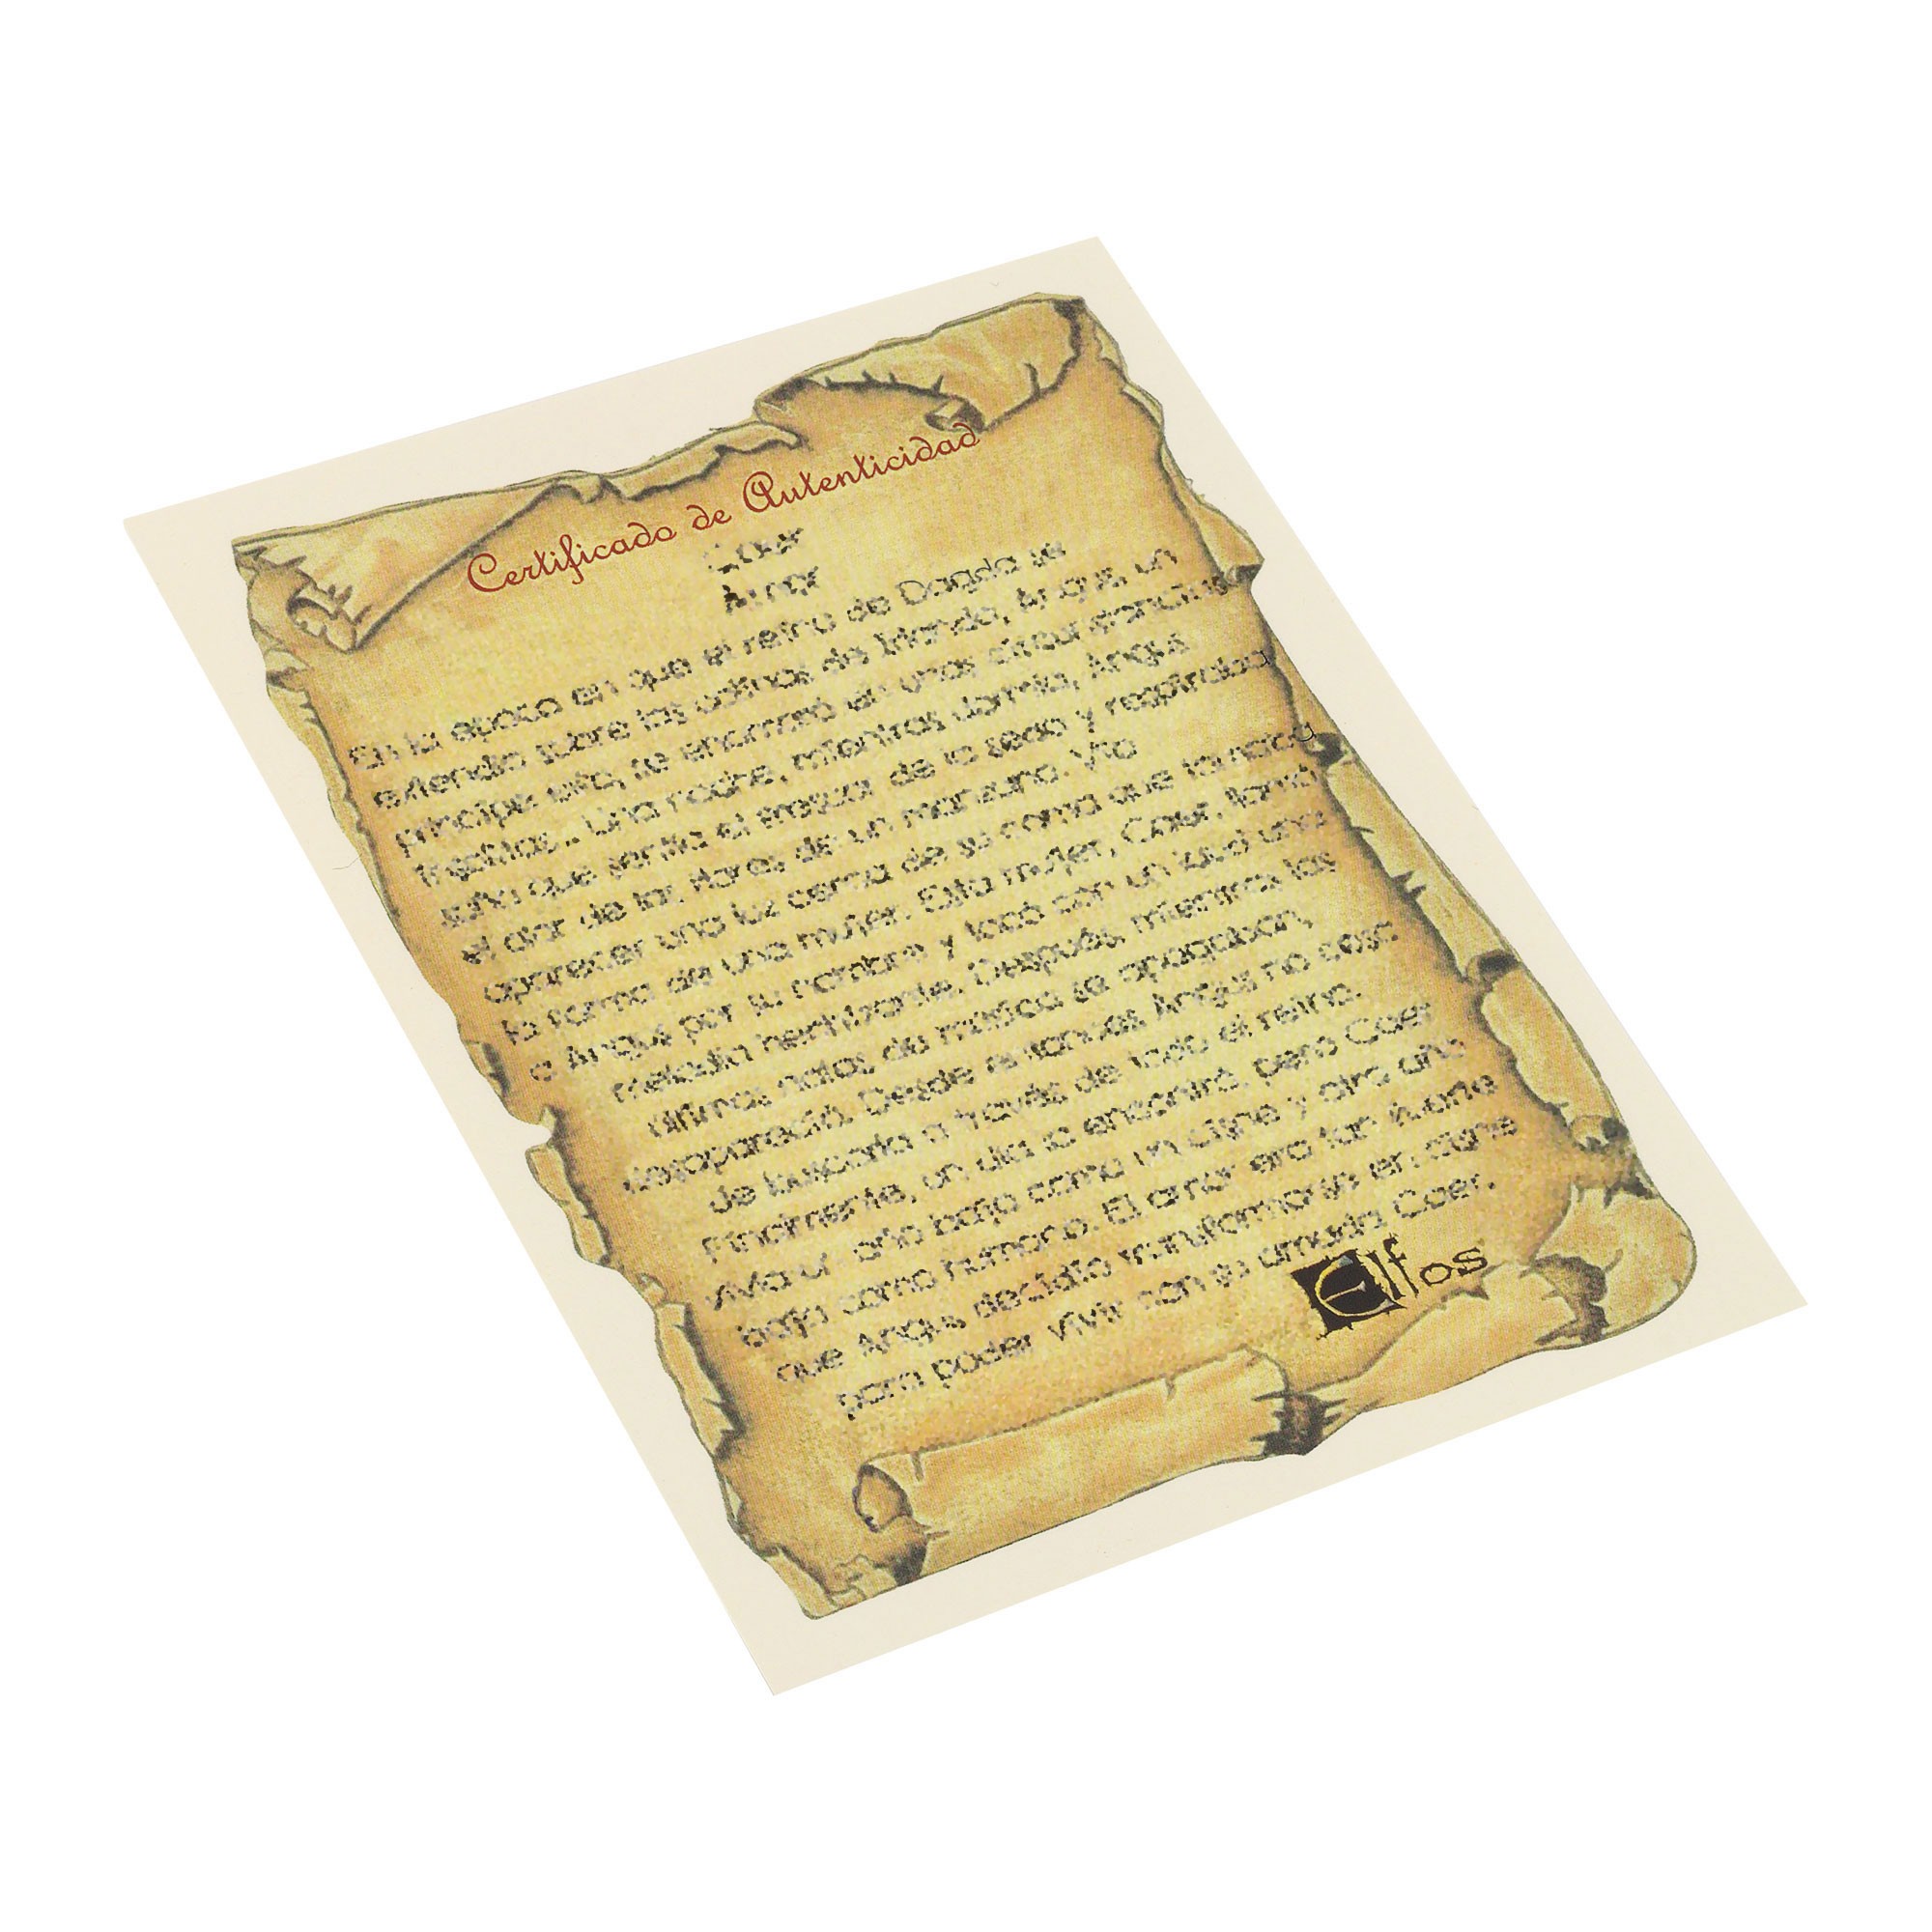 Certificado de Autenticidad
Coer
Amor
En la epoca en que el reino de Dagda se
extendia sobre las colinas de Irlanda, Angus, un
principe elfo, se enamoró en unas circunstancias
insolitas... Una noche, mientras dormía, Angus
soñó que sentía el frescor de la seda y respiraba
el olor de las flores de un manzano. Vio
aparecer una luz cerca de su cama que tomaba
la forma de una mujer. Esta mujer, Coer, llamó
a Angus por su nombre y tocó con un laúd una
melodía hechizante. Después, mientras las
últimas notas de música se apagaban,
desapareció. Desde entonces Angus no cesó
de buscarla a través de todo el reino.
Finalmente, un día la encontró, pero Coer
vivía un año bajo como un cisne y otro año
bajo como humano. El amor era tan fuerte
que Angus decidió transformarse en cisne
para poder vivir con su amada Coer.
Elfos